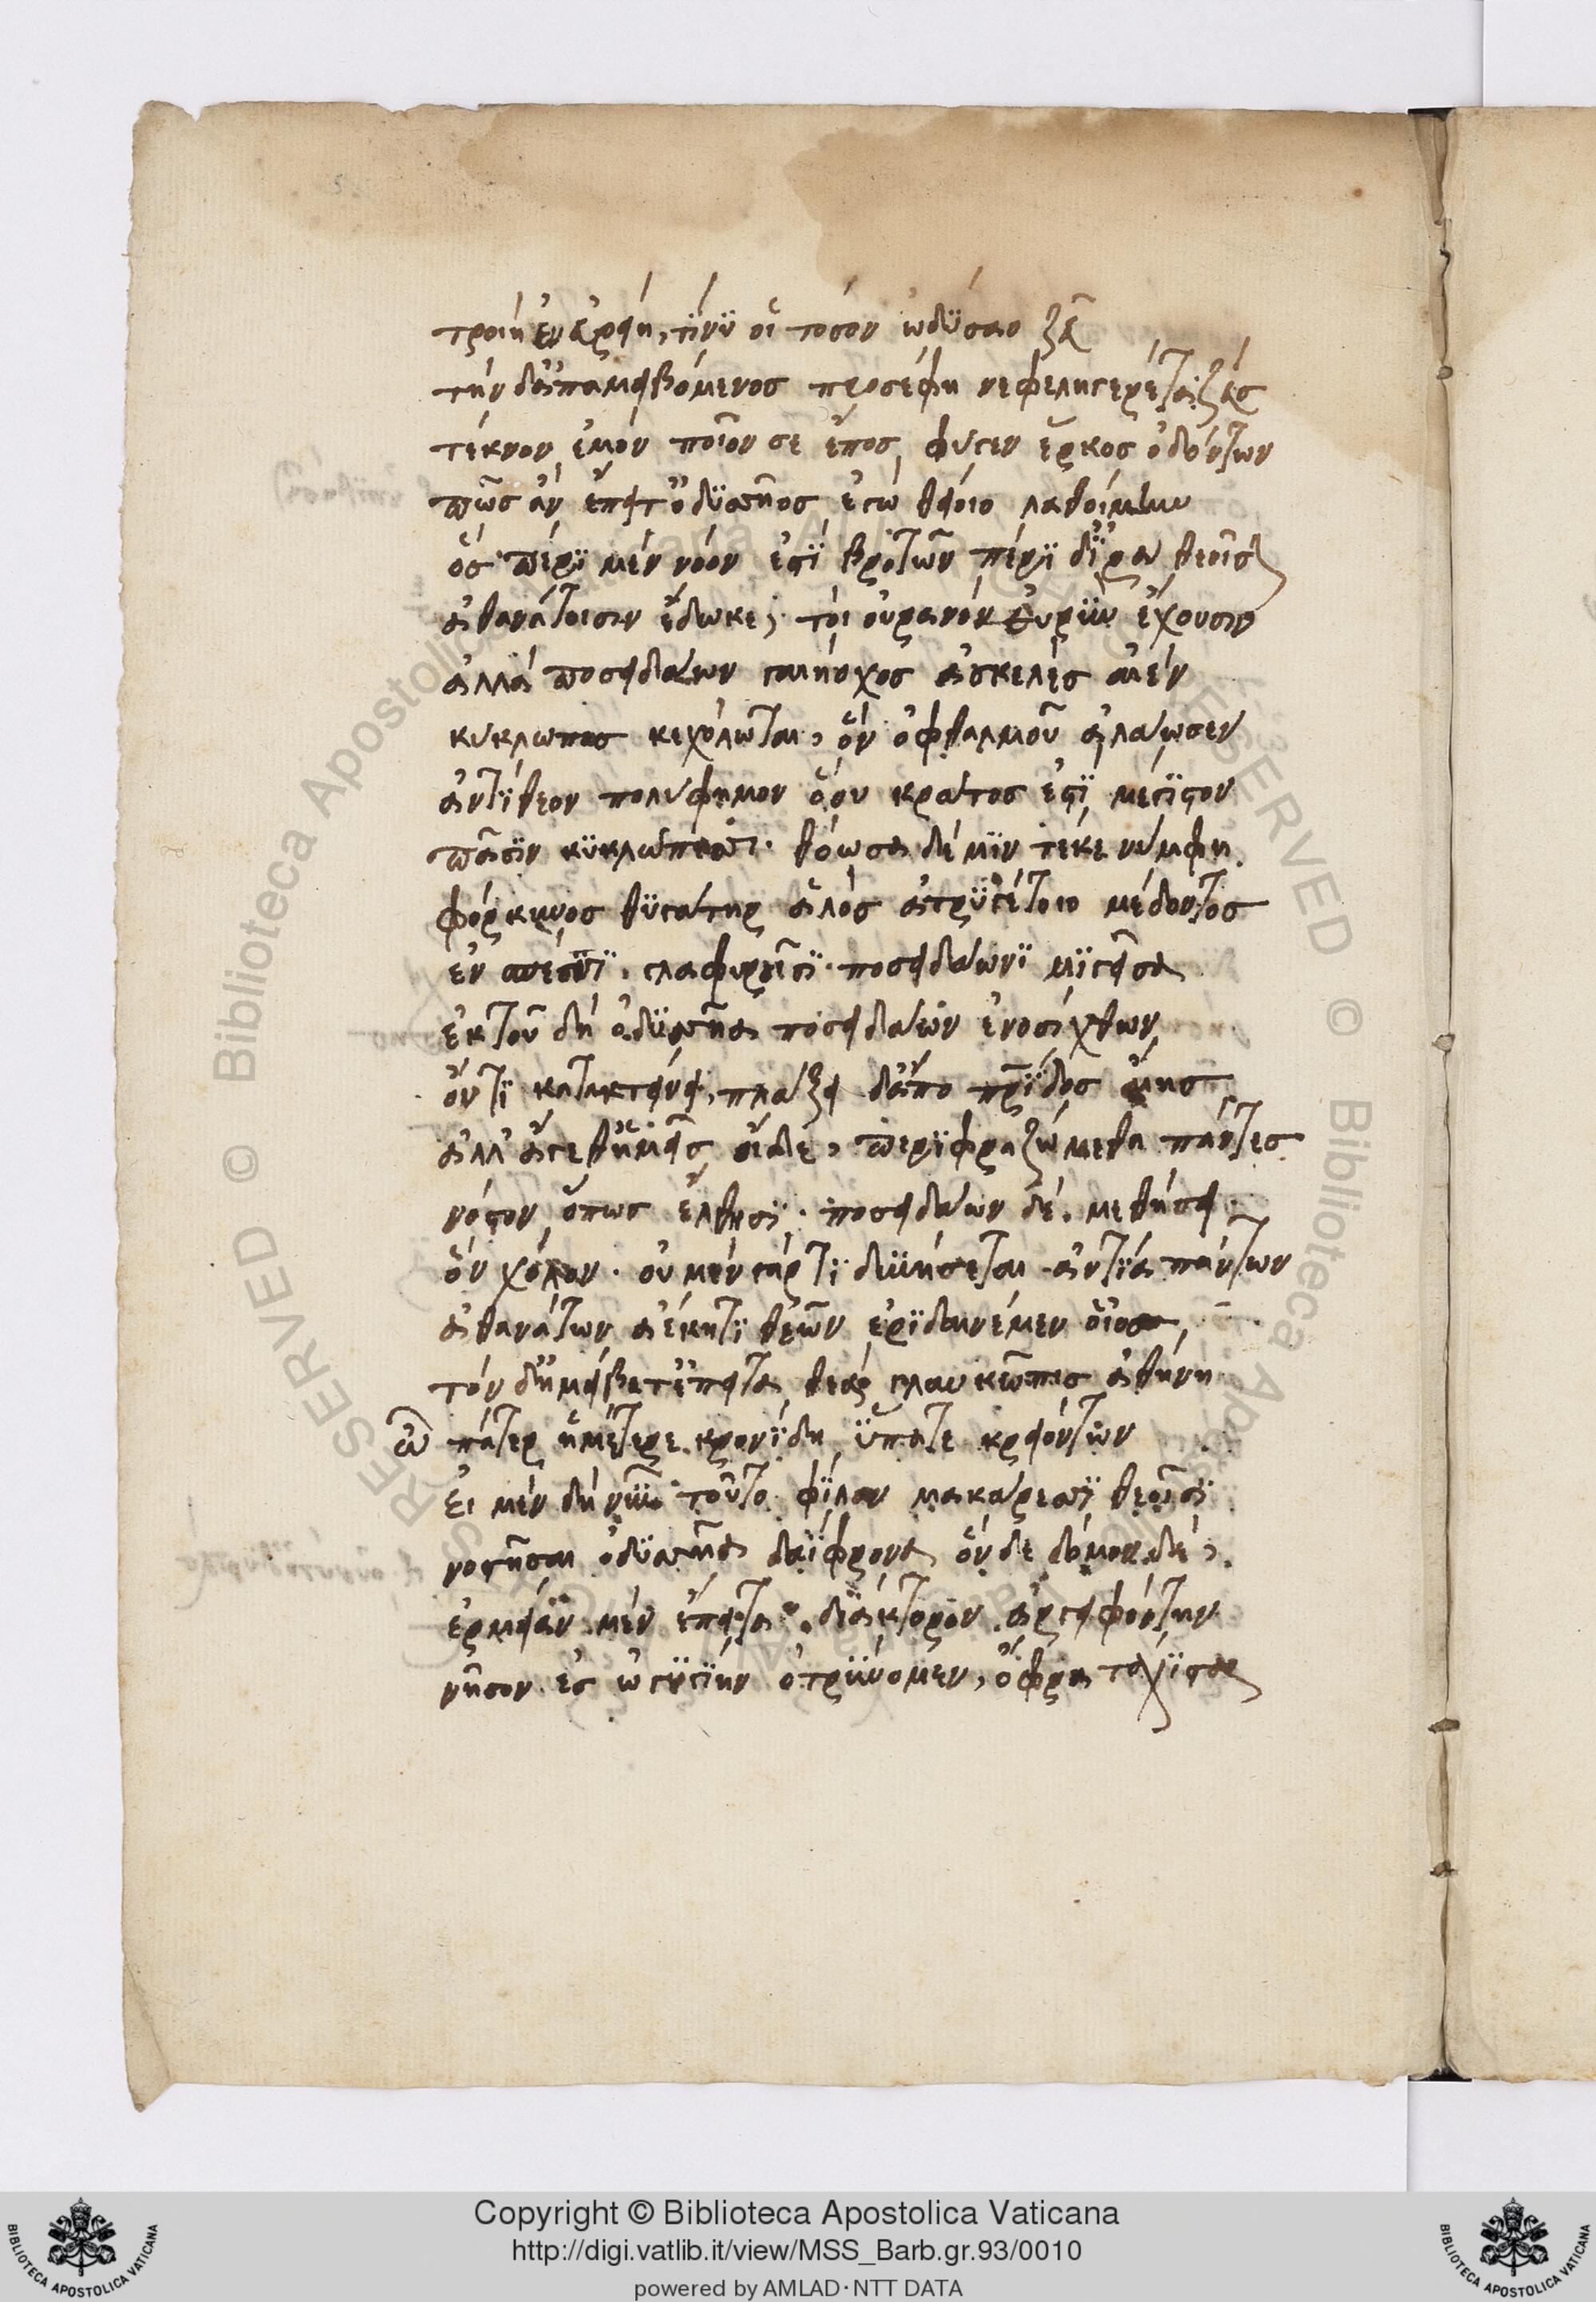 τροίη ἐν εὐρείη, τί νύ οἱ τόσον ὠδύσαο ζεῦ
τὴν δ' ἀπαμειβόμενος προσέφη νεφεληγερέτα ζεύς
τέκνον ἐμόν ποῖον σε ἔπος φύγεν ἕρκος ὀδόντων
πῶς ἂν ἔπειτ' ὀδϋσῆος ἐγὼ θείοιο λαθοίμην
ὃς πέρϊ μέν νόον ἐστϊ βροτῶν πέρϊ δ' ἱρὰ θεοῖσιν
ἀθανάτοισιν ἔδωκε, τοὶ οὐρανόν εὐρὺν ἔχουσιν
ἀλλά ποσειδάων γαιήοχος ἀσκελὲς αἰέν
κύκλωπος κεχόλωται, ὃν ὀφθαλμοῦ ἀλάωσεν
ἀντίθεον πολύφημον ὅου κράτος ἐστϊ μέγϊστον
πᾶσϊν κϋκλώπεσσι. θόωσα δέ μϊν τέκε νύμφη
φόρκυνος θϋγάτηρ ἁλός ἀτρϋγέτοιο μέδοντος
ἐν σπέσσϊ γλαφυροῖσϊ ποσειδάωνϊ μϊγεῖσα
ἐκ τοῦ δὴ ὀδϋσῆα ποσειδάων ἐνοσίχθων
οὔτϊ κατακτείνει, πλάζει δ' ἀπὸ πατρίδος αἴης
ἀλλ' ἄγεθ' ἡμεῖς οἵδε, περϊφραζώμεθα πάντες
νόστον ὅπως ἔλθησϊ. ποσειδάων δέ μεθήσει
ὃν χόλον. οὐ μέν γάρ τϊ δϋνήσεται ἀντία πάντων
ἀθανάτων ἀέκητϊ θεῶν ἐρϊδαινέμεν οἶος
τόν δ' ἠμείβετ' ἔπειτα θεὰ γλαυκῶπις ἀθήνη
ὦ πάτερ ἡμέτερε κρονΐδη ὕπατε κρειόντων
εἰ μέν δὴ νῦν τοῦτο φΐλον μακάρεσσϊ θεοῖσϊ
νοστῆσαι ὀδϋσῆα δαΐφρονα ὅν δε δόμον δέ,
ἑρμείαν μὲν ἔπειτα διάκτορον ἀργειφόντην
νῆσον ἐς ὠγϋγίην ὀτρϋνομεν, ὄφρα τάχϊστα
Copyright © Biblioteca Apostolica Vaticana
http://digi.vatlib.it/view/MSS_Barb.gr.93/0010
powered by AMLAD·NTT DATA